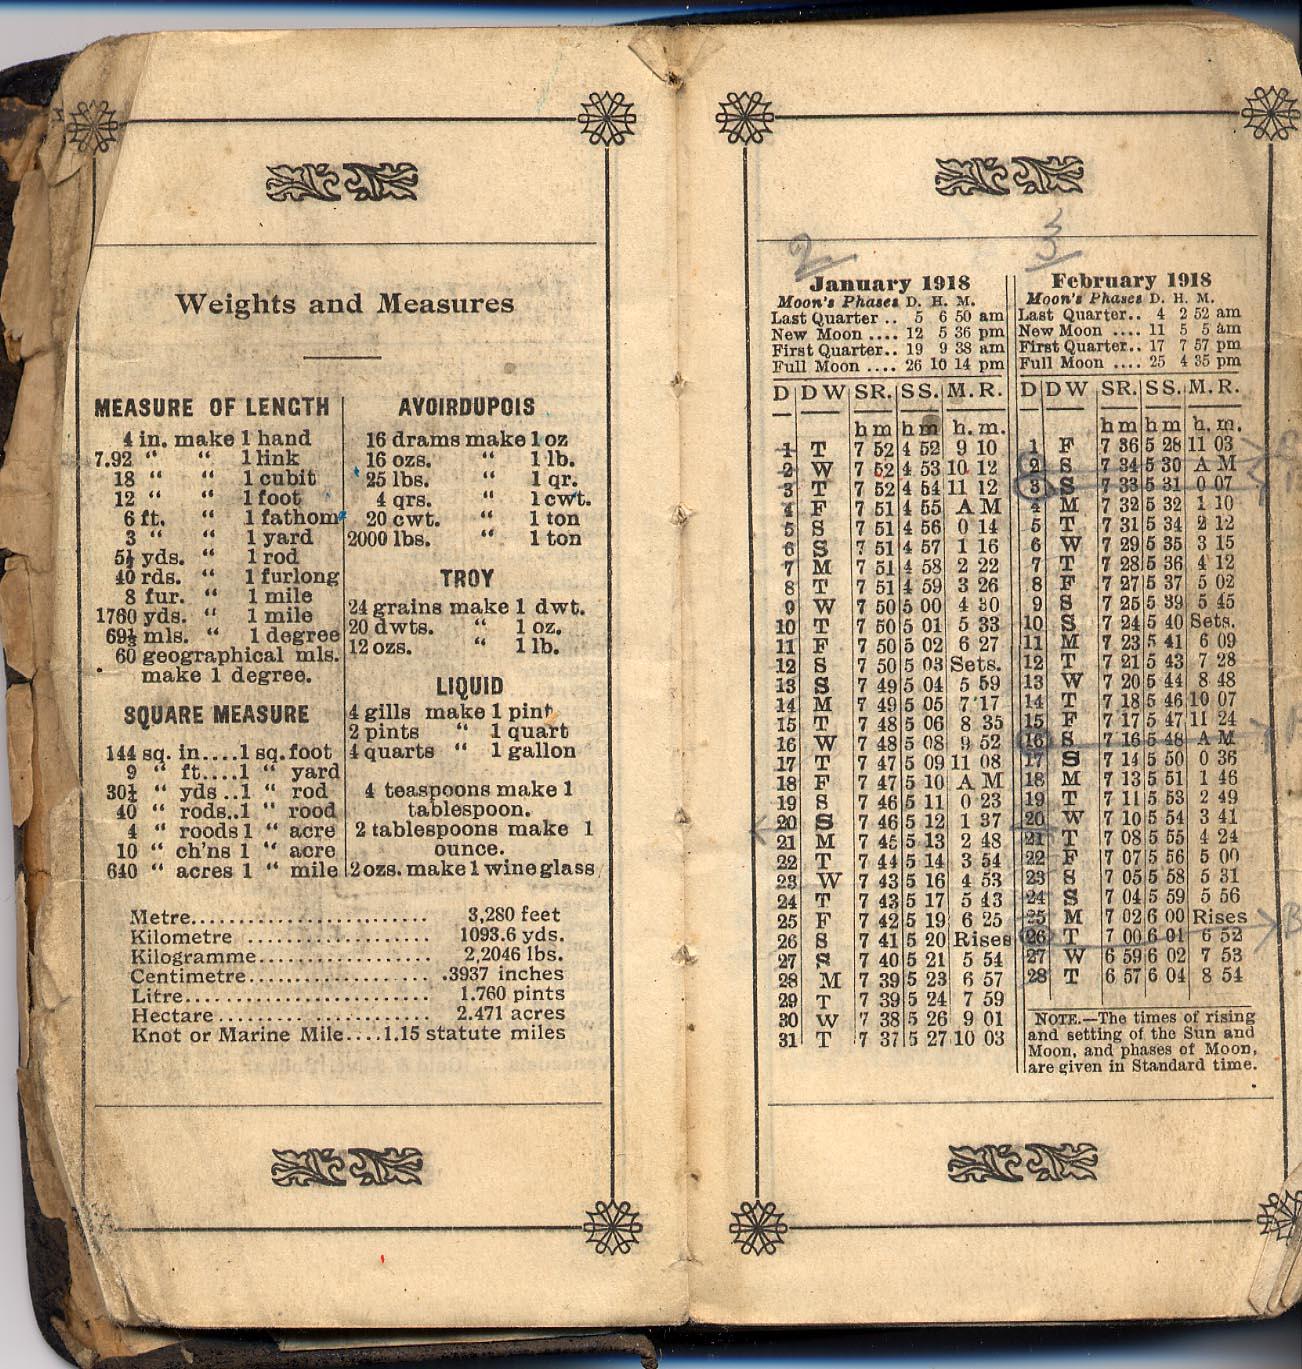 Weights and Measures
MEASURE OF LENGTH
4 in. make 1 hand
7.92 “ “ 1 link
18 “ “ 1 cubit
12 “ “ 1 foot
6 ft. “ 1 fathom
3 “ “ 1 yard
5½ yds. “ 1 rod
40 rds. “ 1 furlong
8 fur. “ 1 mile
1760 yds. “ 1 mile
69⅓ mls. “ 1 degree
60 geographical mls.
make 1 degree.
SQUARE MEASURE
144 sq. in....1 sq. foot
9 “ ft....1 “ yard
30¼ “ yds..1 “ rod
40 “ rods..1 “ rood
4 “ roods 1 “ acre
10 “ ch'ns 1 “ acre
640 “ acres 1 “ mile
AVOIRDUPOIS
16 drams make 1 oz
16 ozs. “ 1 lb.
25 lbs. “ 1 qr.
4 qrs. “ 1 cwt.
20 cwt. “ 1 ton
2000 lbs. “ 1 ton
TROY
24 grains make 1 dwt.
20 dwts. “ 1 oz.
12 ozs. “ 1 lb.
LIQUID
4 gills make 1 pint
2 pints “ 1 quart
4 quarts “ 1 gallon
4 teaspoons make 1
tablespoon.
2 tablespoons make 1
ounce.
2 ozs. make 1 wineglass
Metre........................ 3,280 feet
Kilometre .................. 1093.6 yds.
Kilogramme................. 2,2046 lbs.
Centimetre................... .3937 inches
Litre........................ 1.760 pints
Hectare..................... 2.471 acres
Knot or Marine Mile....1.15 statute miles
2
January 1918
Moon's Phases D. H. M.
Last Quarter .. 5 6 50 am
New Moon .... 12 5 36 pm
First Quarter.. 19 9 38 am
Full Moon .... 26 10 14 pm
D D W SR. SS. M. R.
h m h m h. m.
1 T 7 52 4 52 9 10
2 W 7 52 4 53 10 12
3 T 7 52 4 54 11 12
4 F 7 51 4 55 A M
5 S 7 51 4 56 0 14
6 S 7 51 4 57 1 16
7 M 7 51 4 58 2 22
8 T 7 51 4 59 3 26
9 W 7 50 5 00 4 30
10 T 7 50 5 01 5 33
11 F 7 50 5 02 6 27
12 S 7 50 5 03 Sets.
13 S 7 49 5 04 5 59
14 M 7 49 5 05 7 17
15 T 7 48 5 06 8 35
16 W 7 48 5 08 9 52
17 T 7 47 5 09 11 08
18 F 7 47 5 10 A M
19 S 7 46 5 11 0 23
20 S 7 46 5 12 1 37
21 M 7 45 5 13 2 48
22 T 7 44 5 14 3 54
23 W 7 43 5 16 4 53
24 T 7 43 5 17 5 43
25 F 7 42 5 19 6 25
26 S 7 41 5 20 Rises
27 S 7 40 5 21 5 54
28 M 7 39 5 23 6 57
29 T 7 39 5 24 7 59
30 W 7 38 5 26 9 01
31 T 7 37 5 27 10 03
3
February 1918
Moon's Phases D. H. M.
Last Quarter.. 4 2 52 am
New Moon .... 11 5 5 am
First Quarter.. 17 7 57 pm
Full Moon .... 25 4 35 pm
D D W SR. SS. M. R.
h m h m h. m.
1 F 7 36 5 28 11 03
2 S 7 34 5 30 A M
3 S 7 33 5 31 0 07
4 M 7 32 5 32 1 10
5 T 7 31 5 34 2 12
6 W 7 29 5 35 3 15
7 T 7 28 5 36 4 12
8 F 7 27 5 37 5 02
9 S 7 25 5 39 5 45
10 S 7 24 5 40 Sets.
11 M 7 23 5 41 6 09
12 T 7 21 5 43 7 28
13 W 7 20 5 44 8 48
14 T 7 18 5 46 10 07
15 F 7 17 5 47 11 24
16 S 7 16 5 48 A M
17 S 7 14 5 50 0 36
18 M 7 13 5 51 1 46
19 T 7 11 5 53 2 49
20 W 7 10 5 54 3 41
21 T 7 08 5 55 4 24
22 F 7 07 5 56 5 00
23 S 7 05 5 58 5 31
24 S 7 04 5 59 5 56
25 M 7 02 6 00 Rises
26 T 7 00 6 01 6 52
27 W 6 59 6 02 7 53
28 T 6 57 6 04 8 54
NOTE.—The times of rising
and setting of the Sun and
Moon, and phases of Moon,
are given in Standard time.